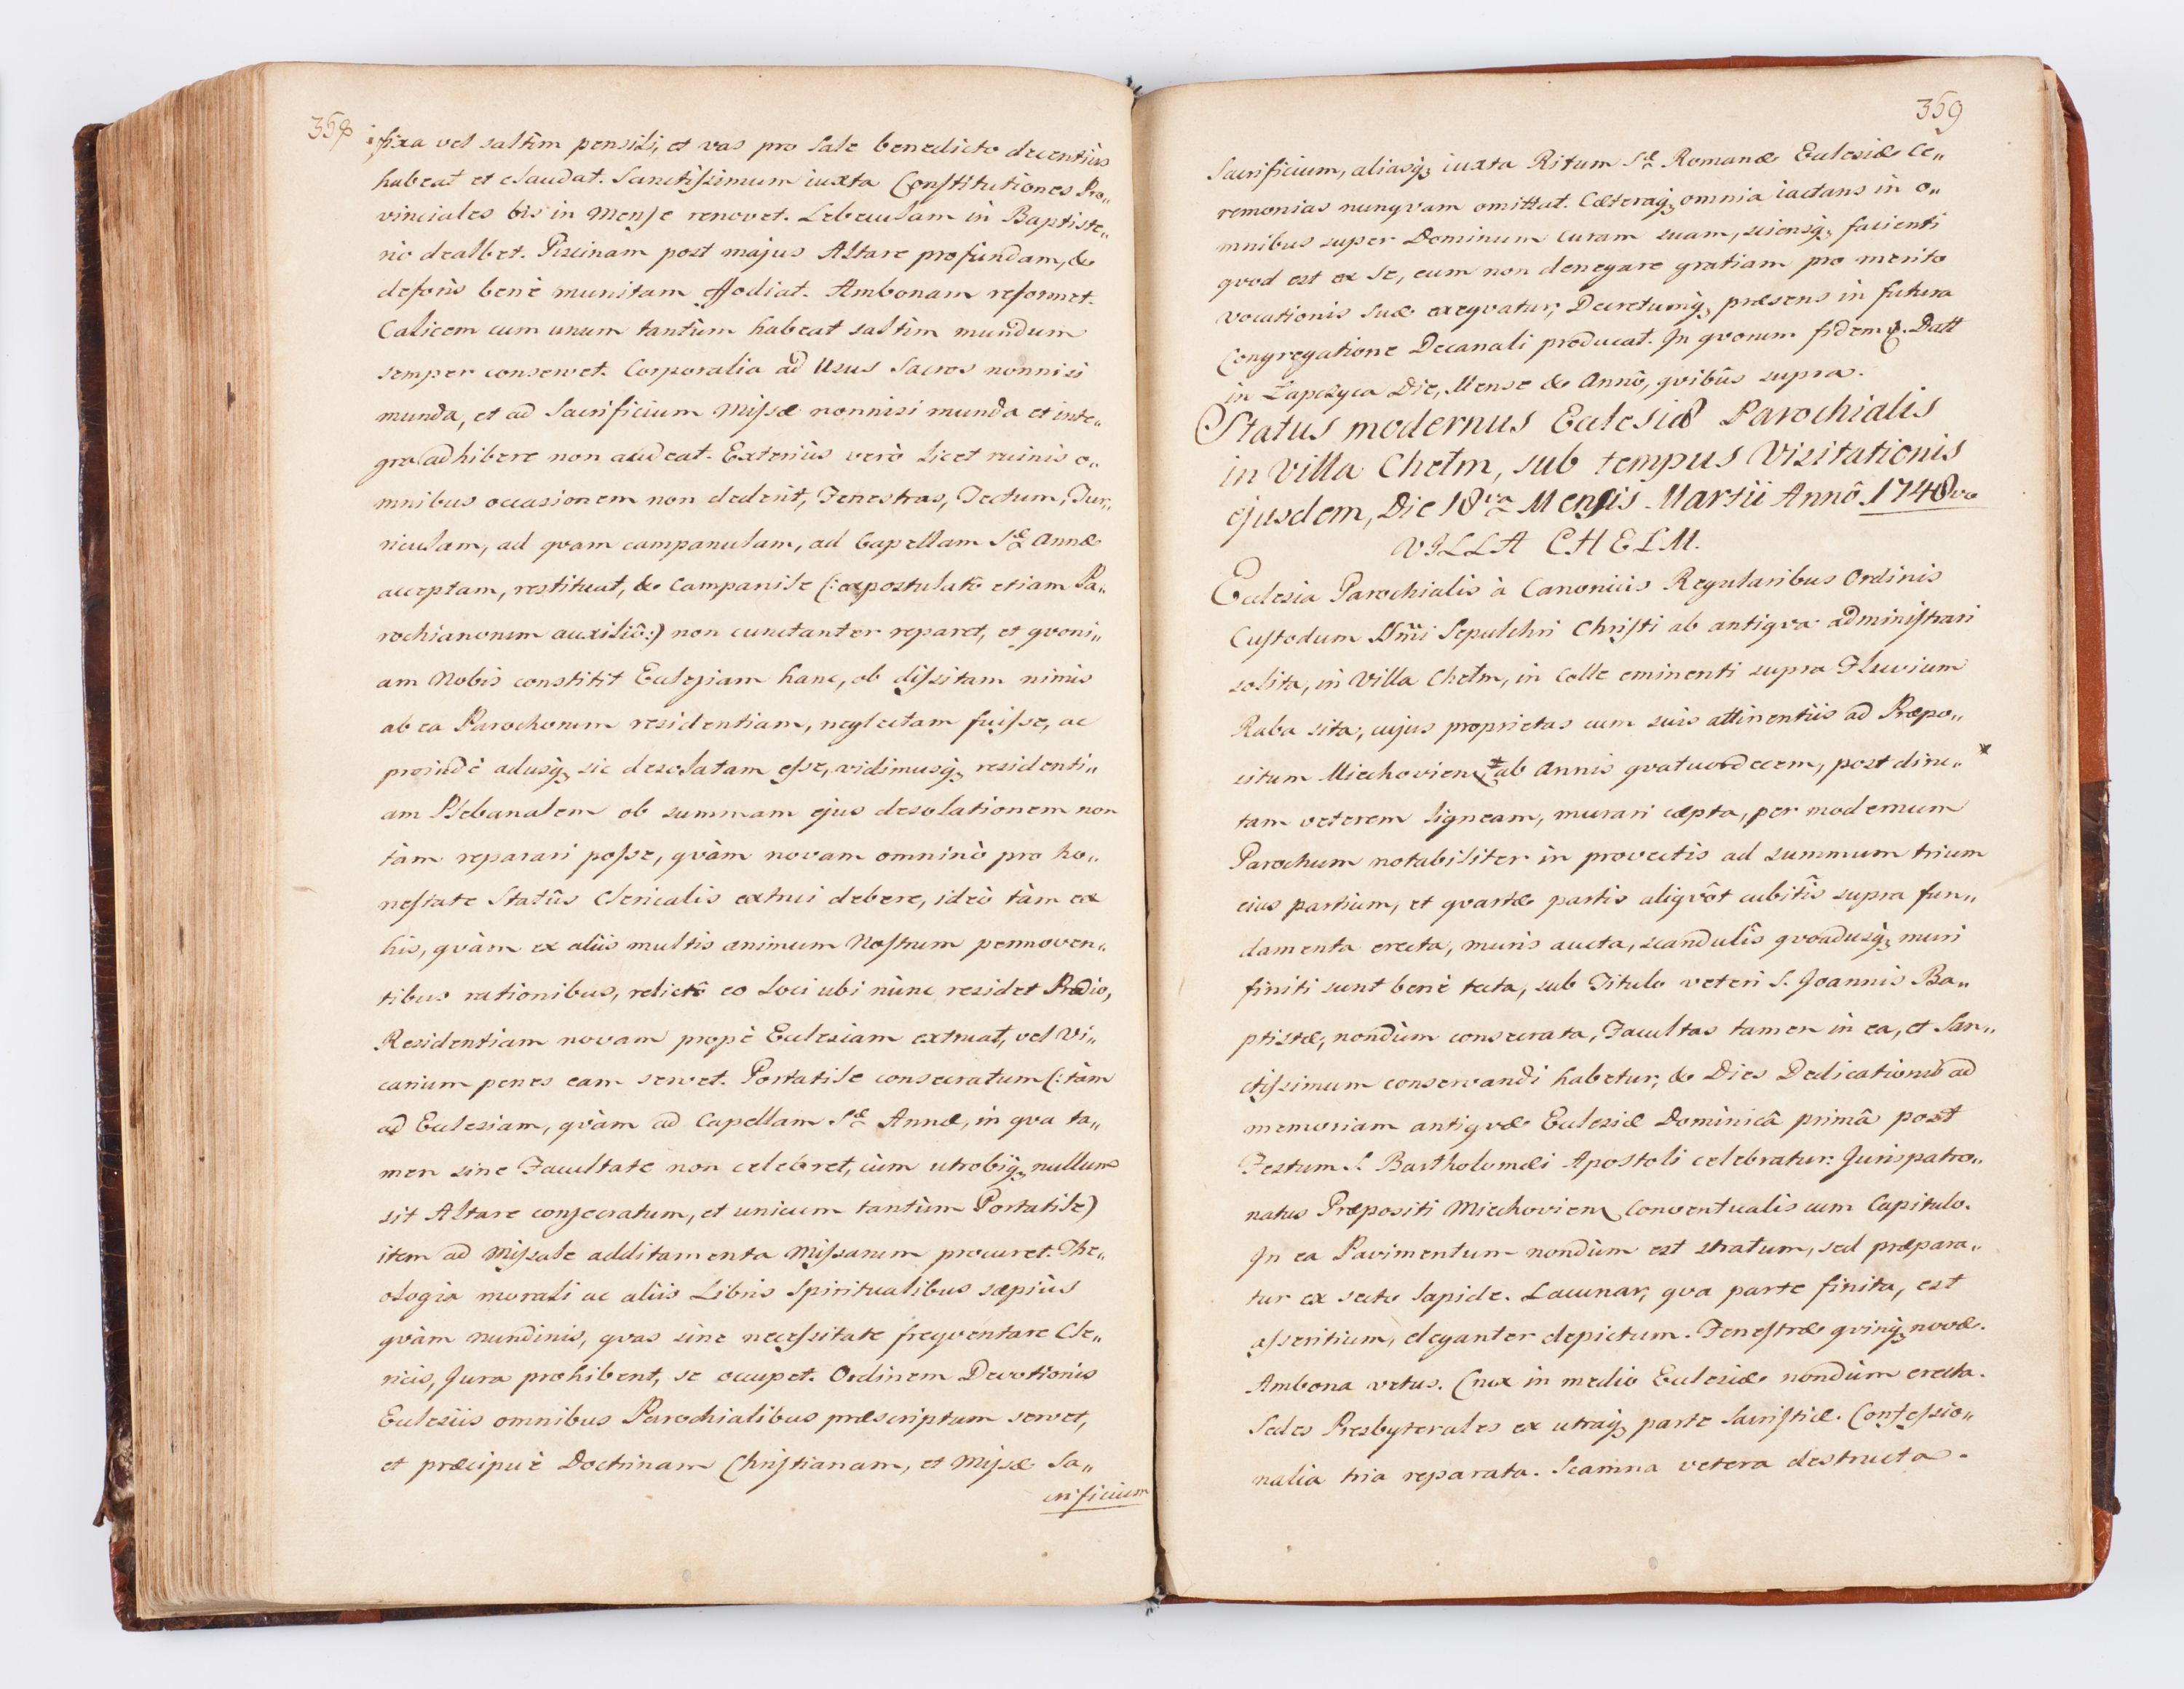 358
ifixa vel saltim pensili, et vas pro Sale benedicto decentius
habeat et claudat. Sanctissimum iuxta Constitutiones Pro„
vinciales bis in Mense renovet. Lebeculam in Baptiste„
rio dealbet. Piscinam post majus Altare profundam, &
deforis benè munitam effodiat. Ambonam reformet.
Calicem cum unum tantùm habeat saltìm mundum
semper conservet. Corporalia ad Usus Sacros nonnisi
munda, et ad Sacrificium Missæ nonnisi munda et inte„
gra adhibere non audeat. Exteriùs verò licet ruinis o„
mnibus occasionem non dederit, Fenestras, Tectum, Tur„
riculam, ad quam campanulam, ad Capellam S. Annæ
acceptam, restituat, & Campanile (: expostulatô etiam Pa„
rochianorum auxiliô:) non cunctanter reparet, et qvoni„
am Nobis constitit Ecclesiam hanc, ob dissitam nimis
ab ea Parochorum residentiam, neglectam fuisse, ac
proindè adusq; sic desolatam esse, vidimusq; residenti„
am Plebanalem ob summam ejus desolationem non
tàm reparari posse, qvàm novam omninò pro ho„
nestate Statûs Clericalis extrui debere, ideò tàm ex
his, qvàm ex aliis multis animum Nostrum permoven„
tibus rationibus, relictô eo loci ubi nùnc residet Prædio,
Residentiam novam propè Ecclesiam extruat, vel Vi„
carium penes eam servet. Portatile consecratum (: tàm
ad Ecclesiam, qvàm ad Capellam S. Annæ, in qva ta„
men sine Facultate non celebret, cùm utrobiq; nullum
sit Altare consecratum, et unicum tantùm Portatile)
item ad Missale additamenta Missarum procuret. The„
ologia morali ac aliis Libris Spiritualibus sæpiùs
qvàm nundinis, qvas sine necessitate freqventare Cle„
ricis, Jura prohibent, se occupet. Ordinem Devotionis
Ecclesiis omnibus Parochialibus præscriptum servet,
et præcipuè Doctrinam Christianam, et Missæ Sa„
crificium
359
Sacrificium, aliasq; iuxta Ritum S. Romanæ Ecclesiæ Ce„
remonias nunqvam omittat. Cæteraq; omnia iactans in o„
mnibus super Dominum Curam suam, sciensq; facienti
qvod est ex se, eum non denegare gratiam pro merito
vocationis suæ exeqvatur; Decretumq; præsens in futura
Congregatione Decanali producat. In qvorum fidem &. Datt
in Łapczyca Die, Mense & Annô, qvibûs supra.
Status modernus Ecclesiæ Parochialis
in Villa Chełm, sub tempus Visitationis
ejusdem, Die 18va Mensis Martii Annô 1748vo
VILLA CHELM.
Ecclesia Parochialis à Canonicis Regularibus Ordinis
Custodum SSmi Sepulchri Christi ab antiqva administrari
solita, in Villa Chełm, in Colle eminenti supra Fluvium
Raba sita; cujus proprietas cum suis attinentiis ad Præpo„
situm Miechovien ab Annis qvatuordecem, post diru„
tam veterem ligneam, murari cæpta, per modernum
Parochum notabiliter in provectis ad summum trium
eius partium, et qvartæ partis aliqvôt cubitîs supra fun„
damenta erecta, muris aucta, scandulîs qvoadusq; muri
finiti sunt benè tecta, sub Titulo veteri S. Joannis Ba„
ptistæ, nondùm consecrata, Facultas tamen in ea, et San„
ctissimum conservandi habetur, & Dies Dedicationis ad
memoriam antiqvæ Ecclesiæ Dominicâ primâ post
Festum S. Bartholomæi Apostoli celebratur: Jurispatro„
natus Præpositi Miechovien Conventualis cum Capitulo.
In ea Pavimentum nondùm est stratum, sed præpara„
tur ex secto lapide. Lacunar, qva parte finita, est
asseritium, eleganter depictum. Fenestræ qvinq; novæ.
Ambona vetus. Crux in medio Ecclesiæ nondùm erecta.
Sedes Presbyterales ex utraq; parte Sacristiæ. Confessio„
nalia tria reparata. Scamna vetera destructa.